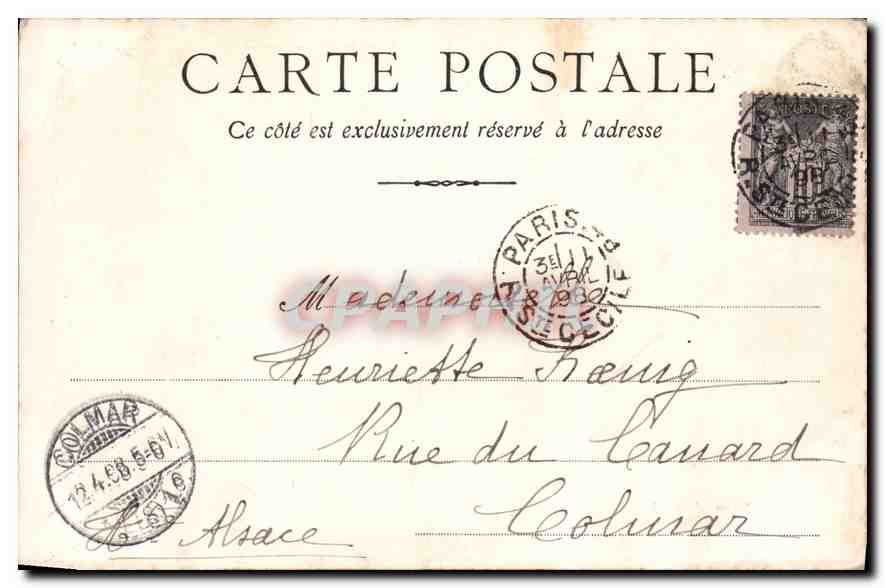 CARTE POSTALE
Ce côté est exclusivement réservé à l'adresse
PARIS
3E 11
AVRIL
98
R. Ste CÉCILE
Mademoiselle
Henriette Kœnig
Rue du Canard
Colmar
Hte Alsace
COLMAR
12.4.98. 5-6V.
CPAPHIL